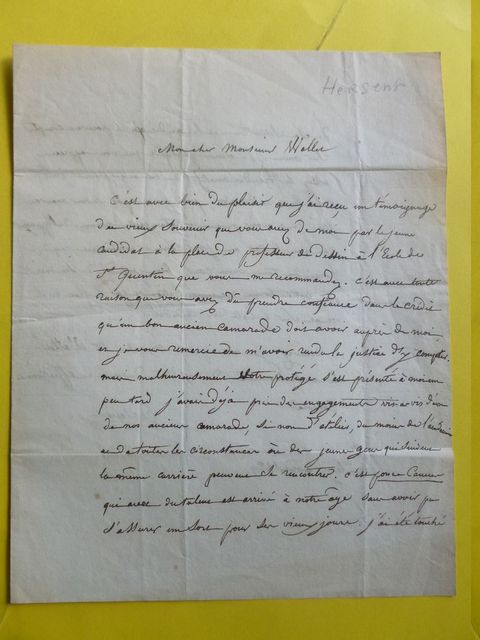 Hersent
Mon cher Monsieur
C'est avec bien du plaisir que j'ai reçu un témoignage
du vieux souvenir que vous avez de moi par le jeune
candidat à la place de professeur de Dessin à l'Ecole de
St Quentin que vous me recommandez. c'est avec toute
raison que vous avez dû prendre confiance dans le crédit
qu'un bon ancien camarade doit avoir auprès de moi
et je vous remercie de m'avoir rendu la justice d'y compter.
mais malheureusement Votre protégé s'est présenté à moi un
peu tard j'avais déjà pris des engagements vis-à-vis d'un
de nos anciens camarade, si non d'atelier, du moins de l'académie
et de toutes les circonstances où des jeunes gens qui étudient
la même carrière peuvent se rencontrer. c'est
qui avec du talent est arrivé à notre âge sans avoir pu
s'assurer un sort pour ses vieux jours. j'ai été touché